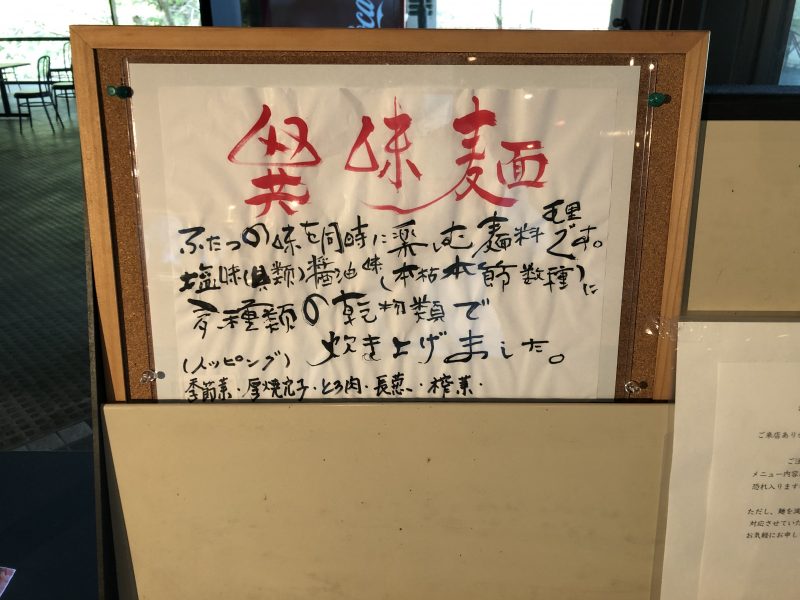 味麺
ふたつの味を同時に楽しむ麺料理です。
塩味(貝類)醤油味(本枯本節数種)に
多種類の乾物類で
炊き上げました。
(トッピング)
季節菜・厚焼穴子・とろ肉・長葱・搾菜・
ご来店あり
メニュー内容
恐れ入ります
ただし、麺を減
対応させていた
お気軽にお申し